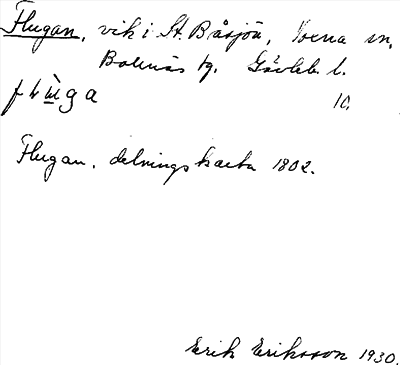 Flugan, vik i St. Båsjön, Voxna sn,
Bollnäs tg. Gävleb. l.
flu̱ga 10.
Flugan. delningskarta 1802.
Erik Eriksson 1930.